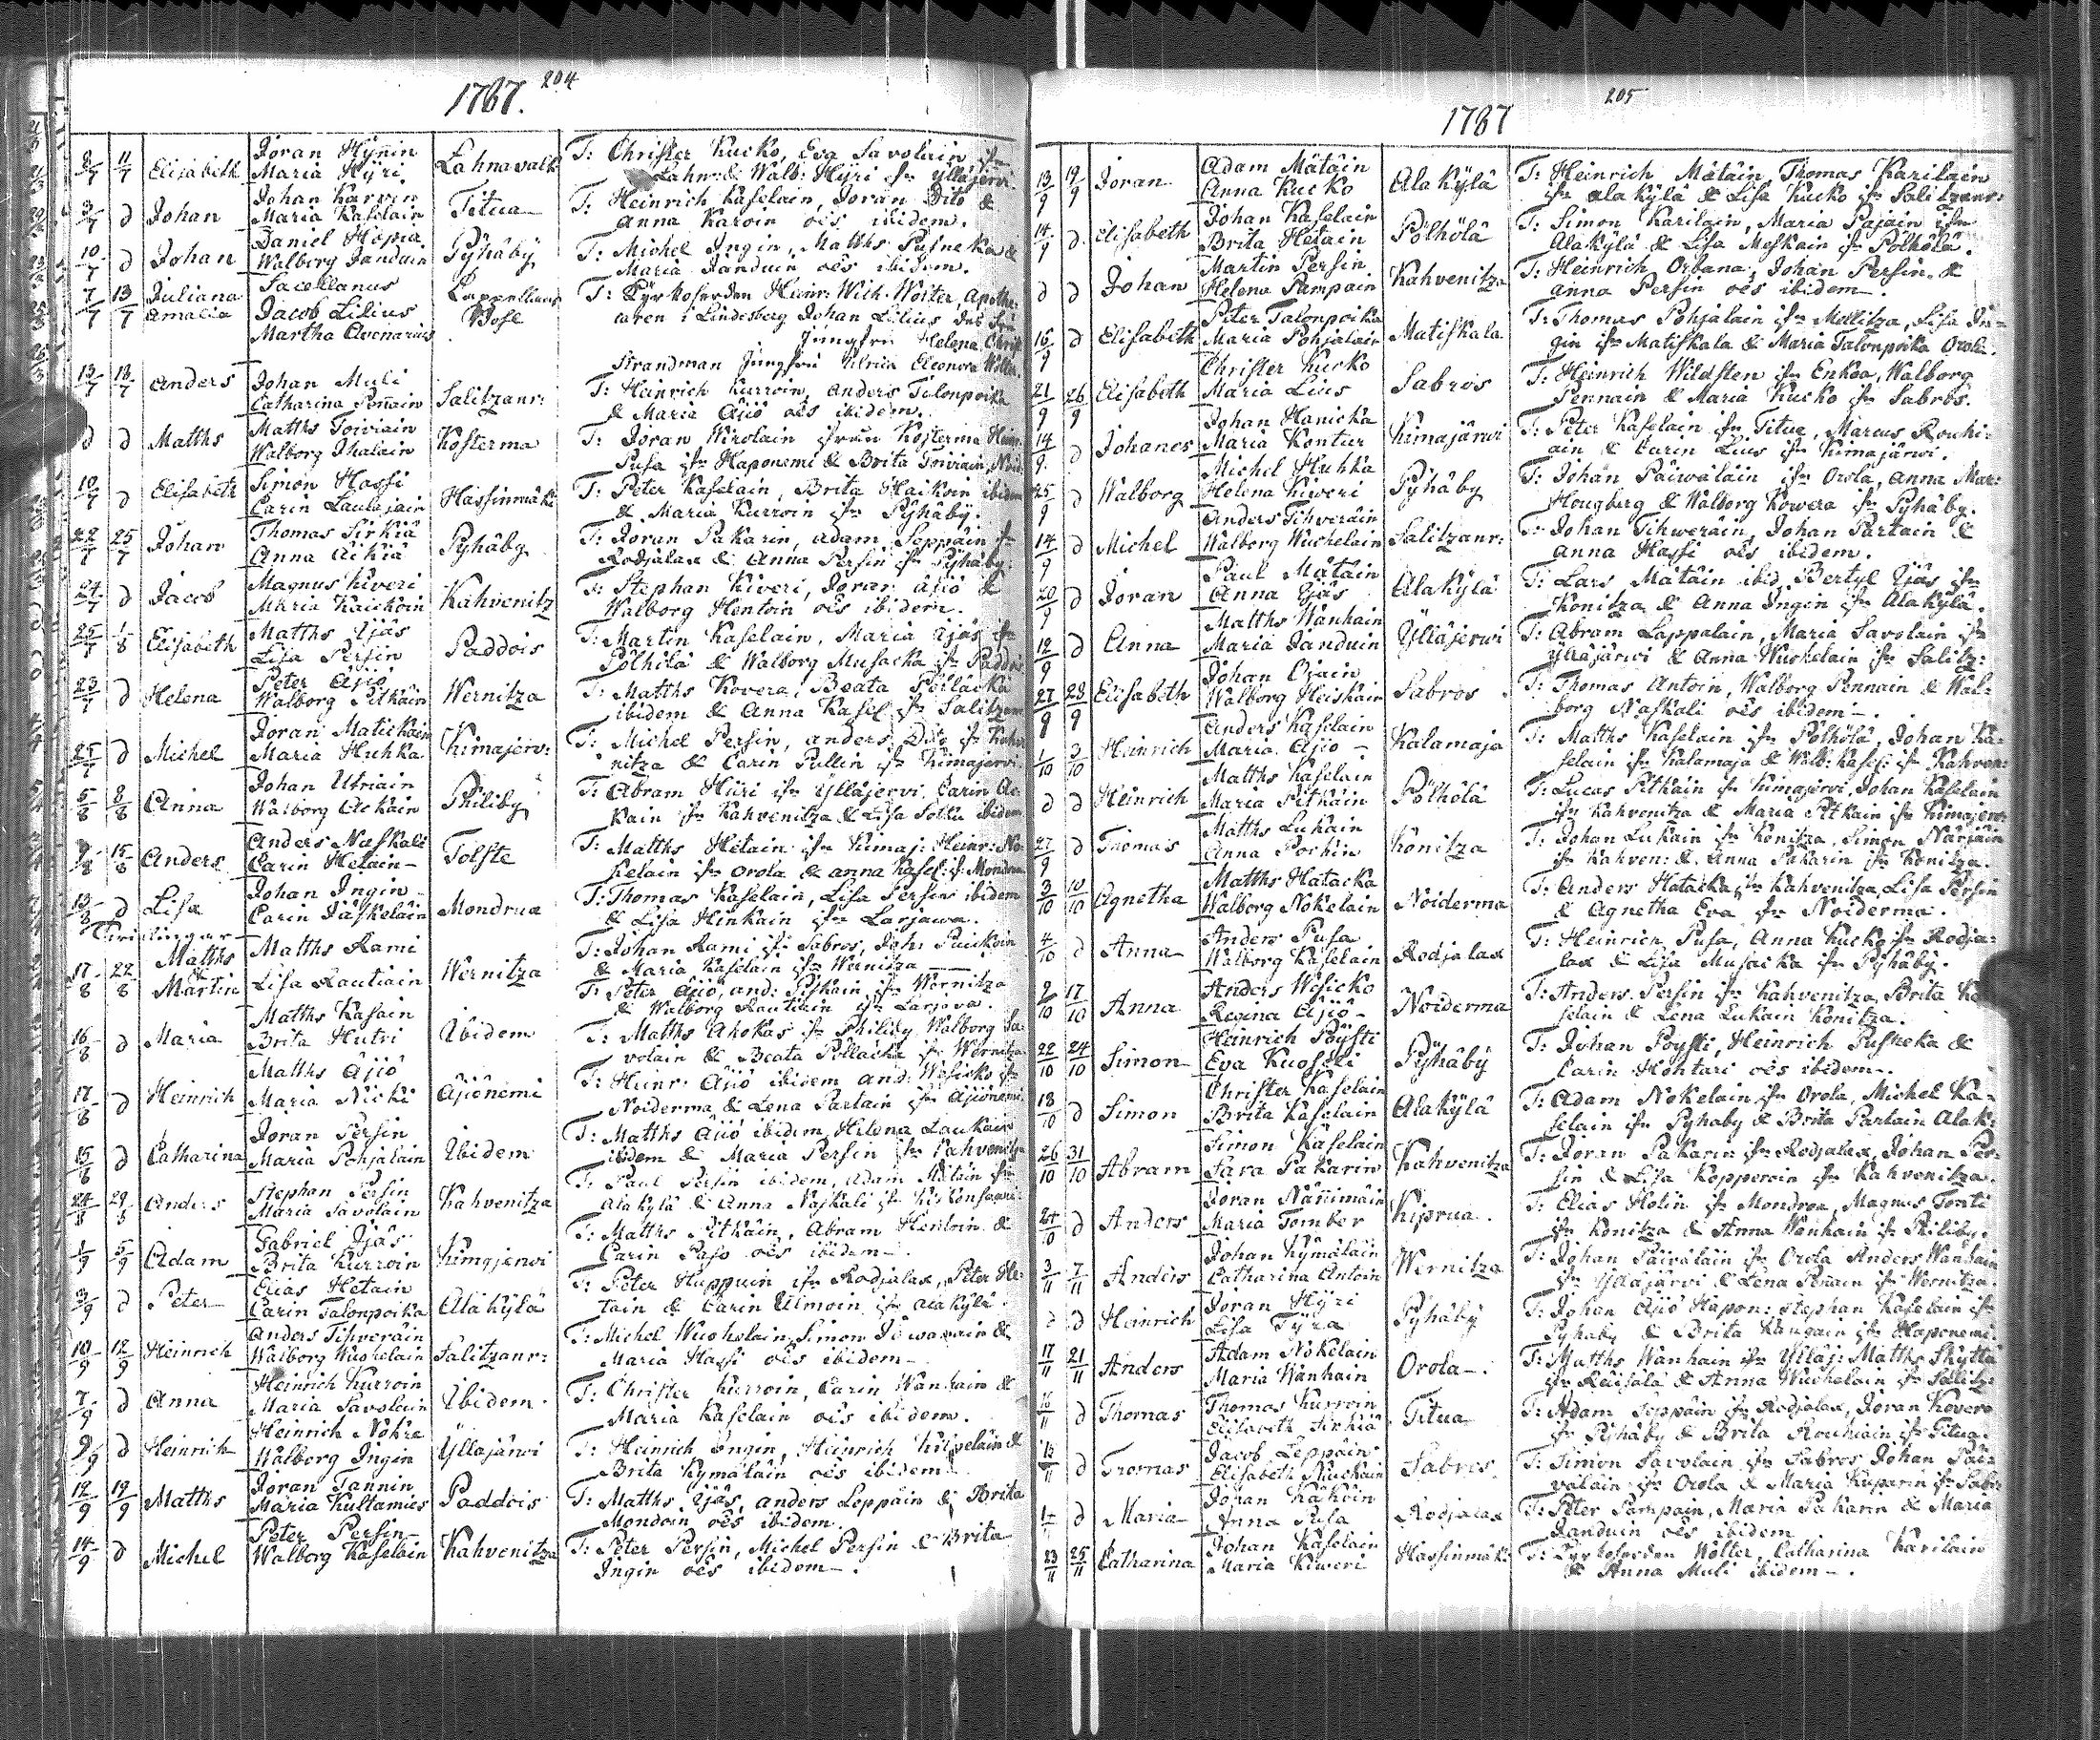 1787. 204
8/7 11/7 Elisabeth Joran Hÿnin Maria Hÿri. Lahnavalk T: Christer Kucko, Eva Savolain ifr
Lahn: & Walb: Hÿri ifr Ylläjervi.
9/7 d Johan Johan Karvin Maria Kaselain Titua T: Heinrich Kaselain, Joran Dito &
Anna Karvin oês ibidem.
10/7 d Johan Daniel Hapia Walborg Janduin Pÿhäbÿ T: Michel Ingin, Matths Pusneka &
Maria Janduin oês ibidem.
7/7 13/7 Juliana Amalia Sacellanus Jacob Lilius Martha Avenarius Cappellans Bohl T: Kÿrkoherden Heinr: Wilh: Wolter, Apothe-
karen i Lindesberg Johan Lilius
Jungfru Helena Christ
Strandman Jungfru Ulrica Eleonora Wolter.
13/7 13/7 Anders Johan Muli Catharina Penain Salitzanr: T: Heinrich Kurroin, Anders Talonpoika
& Maria Äjiö oês ibidem.
d d Matths Matths Toiviain Walborg Ihalain Kosterma T: Joran Wirolain ifrån Kosterma Heinr:
Pusa ifr Haponemi & Brita Toiviain
10/7 d Elisabeth Simon Hassi Carin Laulajain Hassinmäki T: Peter Kaselain, Brita Haikoin ibidem
& Maria Kurroin ifr Pÿhäbÿ.
22/7 25/7 Johan Thomas Sirkiä Anna Äikiä Pÿhäbÿ T: Joran Pakarin, Adam Seppäin ifr
Rodjalax & Anna Persin ifr Pÿhäbÿ.
24/7 d Jacob Magnus Kiveri Maria Kaickoin Kahvenitz T: Stephan Kiveri, Joran Äjiö &
Walborg Hentoin oês ibidem.
25/7 1/8 Elisabeth Matths Äjäs Lisa Persin Paddois T: Martin Kaselain, Maria Äjäs ifr
Pölhölä & Walborg Musacka ifr Paddois
23/7 d Helena Peter Äjiö Walborg Pitkäin Wernitza T: Matths Kovera, Beata Pöllacka
ibidem & Anna Kasel ifr Salitzanr
25/7 d Michel Joran Matickain Maria Huhka Kimajerv: T: Michel Persin, Anders Dito ifr Kahve
nitza & Carin Pullin ifr Kimajervi.
5/8 8/8 Anna Johan Utriain Walborg Ackain Philibÿ T: Abram Hüri ifr Ylläjervi, Carin Ac-
kain ifr Kahvenitza & Lisa ibidem
9/8 15/8 Anders Anders Naskali Carin Hetain Tolste T: Matths Hetain ifr Kimaj: Heinr: No-
kelain ifr Orola & Anna Kasel: ifr Mondrua
13/8 d Lisa Johan Ingin Carin Jäskeläin Mondrua T: Thomas Kaselain, Lisa Persin ibidem
& Lisa Hinkain ifr Larjawa.
Tvillingar
17/8 22/8 Matths & Martin Matths Rami Lisa Rautiain Wernitza T: Johan Rami ifr Sabros, Joh: Puickoin
& Maria Kaselain ifr Wernitza
T: Peter Äjiö, And: Pitkäin ifr Wernitza
& Walborg Rautiain ifr Larjava.
16/8 d Maria Matths Kasain Brita Hutri Ibidem T: Matths Ahokas ifr Philiby, Walborg Sa-
volain & Beata Pöllacka ifr Wernitza
17/8 d Heinrich Matths Äjiö Maria Nicki Äjiönemi T: Heinr: Äjiö ibidem And: Wesicko ifr
Noiderma & Lena Partain ifr Äjiönemi
15/8 d Catharina Joran Persin Maria Pohjalain Ibidem T: Matths Äjiö ibidem, Helena Laukain
ibidem & Maria Persin ifr Kahvenitza
24/8 29/8 Anders Stephan Persin Maria Savolain Kahvenitza T: Paul Persin ibidem, Adam Mätäin ifr
Alakÿlä & Anna Naskali ifr
1/9 5/9 Adam Gabriel Äjäs Brita Kurroin Kimajervi T: Matths Pitkäin, Abram Hentoin &
Carin Pass oês ibidem
3/9 d Peter Elias Hetain Carin Talonpoika Alakÿlä T: Peter Huppuin ifr Rodjalax, Peter He-
tain & Carin Ulmoin ifr Alakÿlä
10/9 12/9 Heinrich Anders Tihverain Walborg Wuohelain Salitzanr: T: Michel Wuohelain, Simon &
Maria Hassi oês ibidem
7/9 d Anna Heinrich Kurroin Maria Savolain Ibidem T: Christer Kurroin, Carin Wanhain &
Maria Kaselain oês ibidem.
9/9 d Heinrich Heinrich Nokra Walborg Ingin Ylläjärvi T: Heinrich Ingin, Heinrich &
Brita Kÿmäläin oês ibidem
12/9 19/9 Matths Joran Tannin Maria Kultamies Paddois T: Matths Äjäs, Anders Leppäin & Brita
Mondoin oês ibidem.
14/9 d Michel Peter Persin Walborg Kaselain Kahvenitza T: Peter Persin, Michel Persin & Brita
Ingin oês ibidem.
1787 205
13/9 19/9 Joran Adam Mätäin Anna Kucko Alakÿlä T: Heinrich Mätäin, Thomas Karilain
ifr Alakÿlä & Lisa Kucko ifr Salitzanr:
14/9 d. Elisabeth Johan Kaselain Brita Hetain Pölhölä T: Simon Karilain, Maria Pajain ifr
Alakÿlä & Lisa Meskain ifr Pölhölä.
d d Johan Martin Persin Helena Pampain Kahvenitza T: Heinrich Orbana, Johan Persin &
Anna Persin oês ibidem.
16/9 d Elisabeth Peter Talonpoika Maria Pohjalain Matiskala T: Thomas Pohjalain ifr Mellitza, Lisa In-
gin ifr Matiskala & Maria Talonpoika Orola.
21/9 26/9 Elisabeth Christer Kucko Maria Lius Sabros T: Heinrich Wildsten ifr Enkoa, Walborg
Pennain & Maria Kucko ifr Sabros.
14/9. d Johanes Johan Hanicka Maria Kontur Kimajärvi T: Peter Kaselain ifr Titua, Marcus Rouhi-
ain & Carin Lius ifr Kimajärvi.
25/9 d Walborg Michel Huhka Helena Kiweri Pÿhäbÿ T: Johan Päiwäläin ifr Orola, Anna Mar:
Hougberg & Walborg Kowera ifr Pÿhäbÿ.
14/9 d Michel Anders Tihveräin Walborg Wuohelain Salitzanr: T: Johan Tihweräin, Johan Partain &
Anna Hassi oês ibidem.
20/9 d Joran Paul Mätäin Anna Äjäs Alakÿlä T: Lars Mätäin ibid. Bertyl Äjäs ifr
Konitza & Anna Ingin ifr Alakÿlä.
12/9 d Anna Matths Wanhain Maria Janduin Ylläjerwi T: Abram Lappalain, Maria Savolain ifr
Ylläjärwi & Anna Wuohelain ifr Salitz:
27/9 28/9 Elisabeth Johan Ojain Walborg Heiskain Sabros T: Thomas Antoin, Walborg Pennain & Wal-
borg Naskali oês ibidem.
1/10 3/10 Heinrich Anders Kaselain Maria Äjiö Kalamaja T: Matths Kaselain ifr Pölhölä, Johan Ka-
selain ifr Kalamaja & Walb: Kasel: ifr Kahven:
d d Heinrich Matths Kaselain Maria Pitkäin Pölhölä T: Lucas Pitkäin ifr Kimajervi, Johan Kaselain
ifr Kahvenitza & Maria Pitkäin ifr Kimajervi
27/9 d Thomas Matths Lukain Anna Pochin Konitza T: Johan Lukain ifr Konitza, Simon Närjäin
ifr Kahven: & Anna Pakarin ifr Konitza.
3/10 10/10 Agnetha Matths Hatacka Walborg Nokelain Noiderma T: Anders Hatacka ifr Kahvenitza, Lisa Persin
& Agnetha Eva ifr Noiderma.
4/10 d Anna Anders Pusa Walborg Kaselain Rodjalax T: Heinrich Pusa, Anna Kucko ifr Rodja-
lax & Lisa Musacka ifr Pÿhäbÿ.
9/10 17/10 Anna Anders Wesicko Regina Äjiö Noiderma T: Anders Persin ifr Kahvenitza, Brita Ka
selain & Lena Lukain Konitza.
22/10 24/10 Simon Heinrich Pöysti Eva Kuosseli Pÿhäbÿ T: Johan Poysti, Heinrich Pusneka &
Carin Hontari oês ibidem.
18/10 d Simon Christer Kaselain Brita Kaselain Alakÿlä T: Adam Nokelain ifr Orola, Michel Ka-
selain ifr Pÿhäbÿ & Brita Partain Alak:
26/10 31/10 Abram Simon Kaselain Sara Pakarin Kahvenitza T: Joran Pakarin ifr Rodjalax, Johan Per-
sin & Lisa Kopperoin ifr Kahvenitza.
24/10 d Anders Joran Nännimäin Maria Tomber Kiprua. T: Elias Holin ifr Mondroa, Magnus Tontti
ifr Konitza & Anna Wanhain ifr Philiby.
3/11 7/11 Anders Johan Kymäläin Catharina Antoin Wernitza T: Johan Päiväläin ifr Orola Anders Wanhain
ifr Ylläjärvi & Lena Penain ifr Wernitza.
d d Heinrich Joran Hÿri Lisa Tÿra Pÿhäbÿ T: Johan Äjiö Hapon: Stephan Kaselain ifr
Pÿhäbÿ & Brita Kangain ifr Haponemi.
17/11 21/11 Anders Adam Nokelain Maria Wanhain Orola. T: Matths Wanhain ifr Ylläj: Matths Skyttä
ifr Räisälä & Anna Wuohelain ifr Salitz:
16/11 d Thomas Thomas Kurroin Elisabeth Sirkiä Titua T: Adam Seppäin ifr Rodjalax, Joran Kovero
ifr Pÿhäbÿ & Brita Rouhiain ifr Titua.
d Thomas Jacob Leppäin Elisabeth Sabros. T: Simon Savolain ifr Sabros Johan Päi-
väläin ifr Orola & Maria Kuparin ifr Sabr:
d Maria Johan Käköin Anna Pusa Rodjalax T: Peter Pampain, Maria Pakarin & Maria
Janduin oês ibidem
23/11 25/11 Catharina Johan Kaselain Maria Kiweri Hassinmäk: T: Kyrkoherden Wolter, Catharina Karilain
& Anna Muli ibidem.